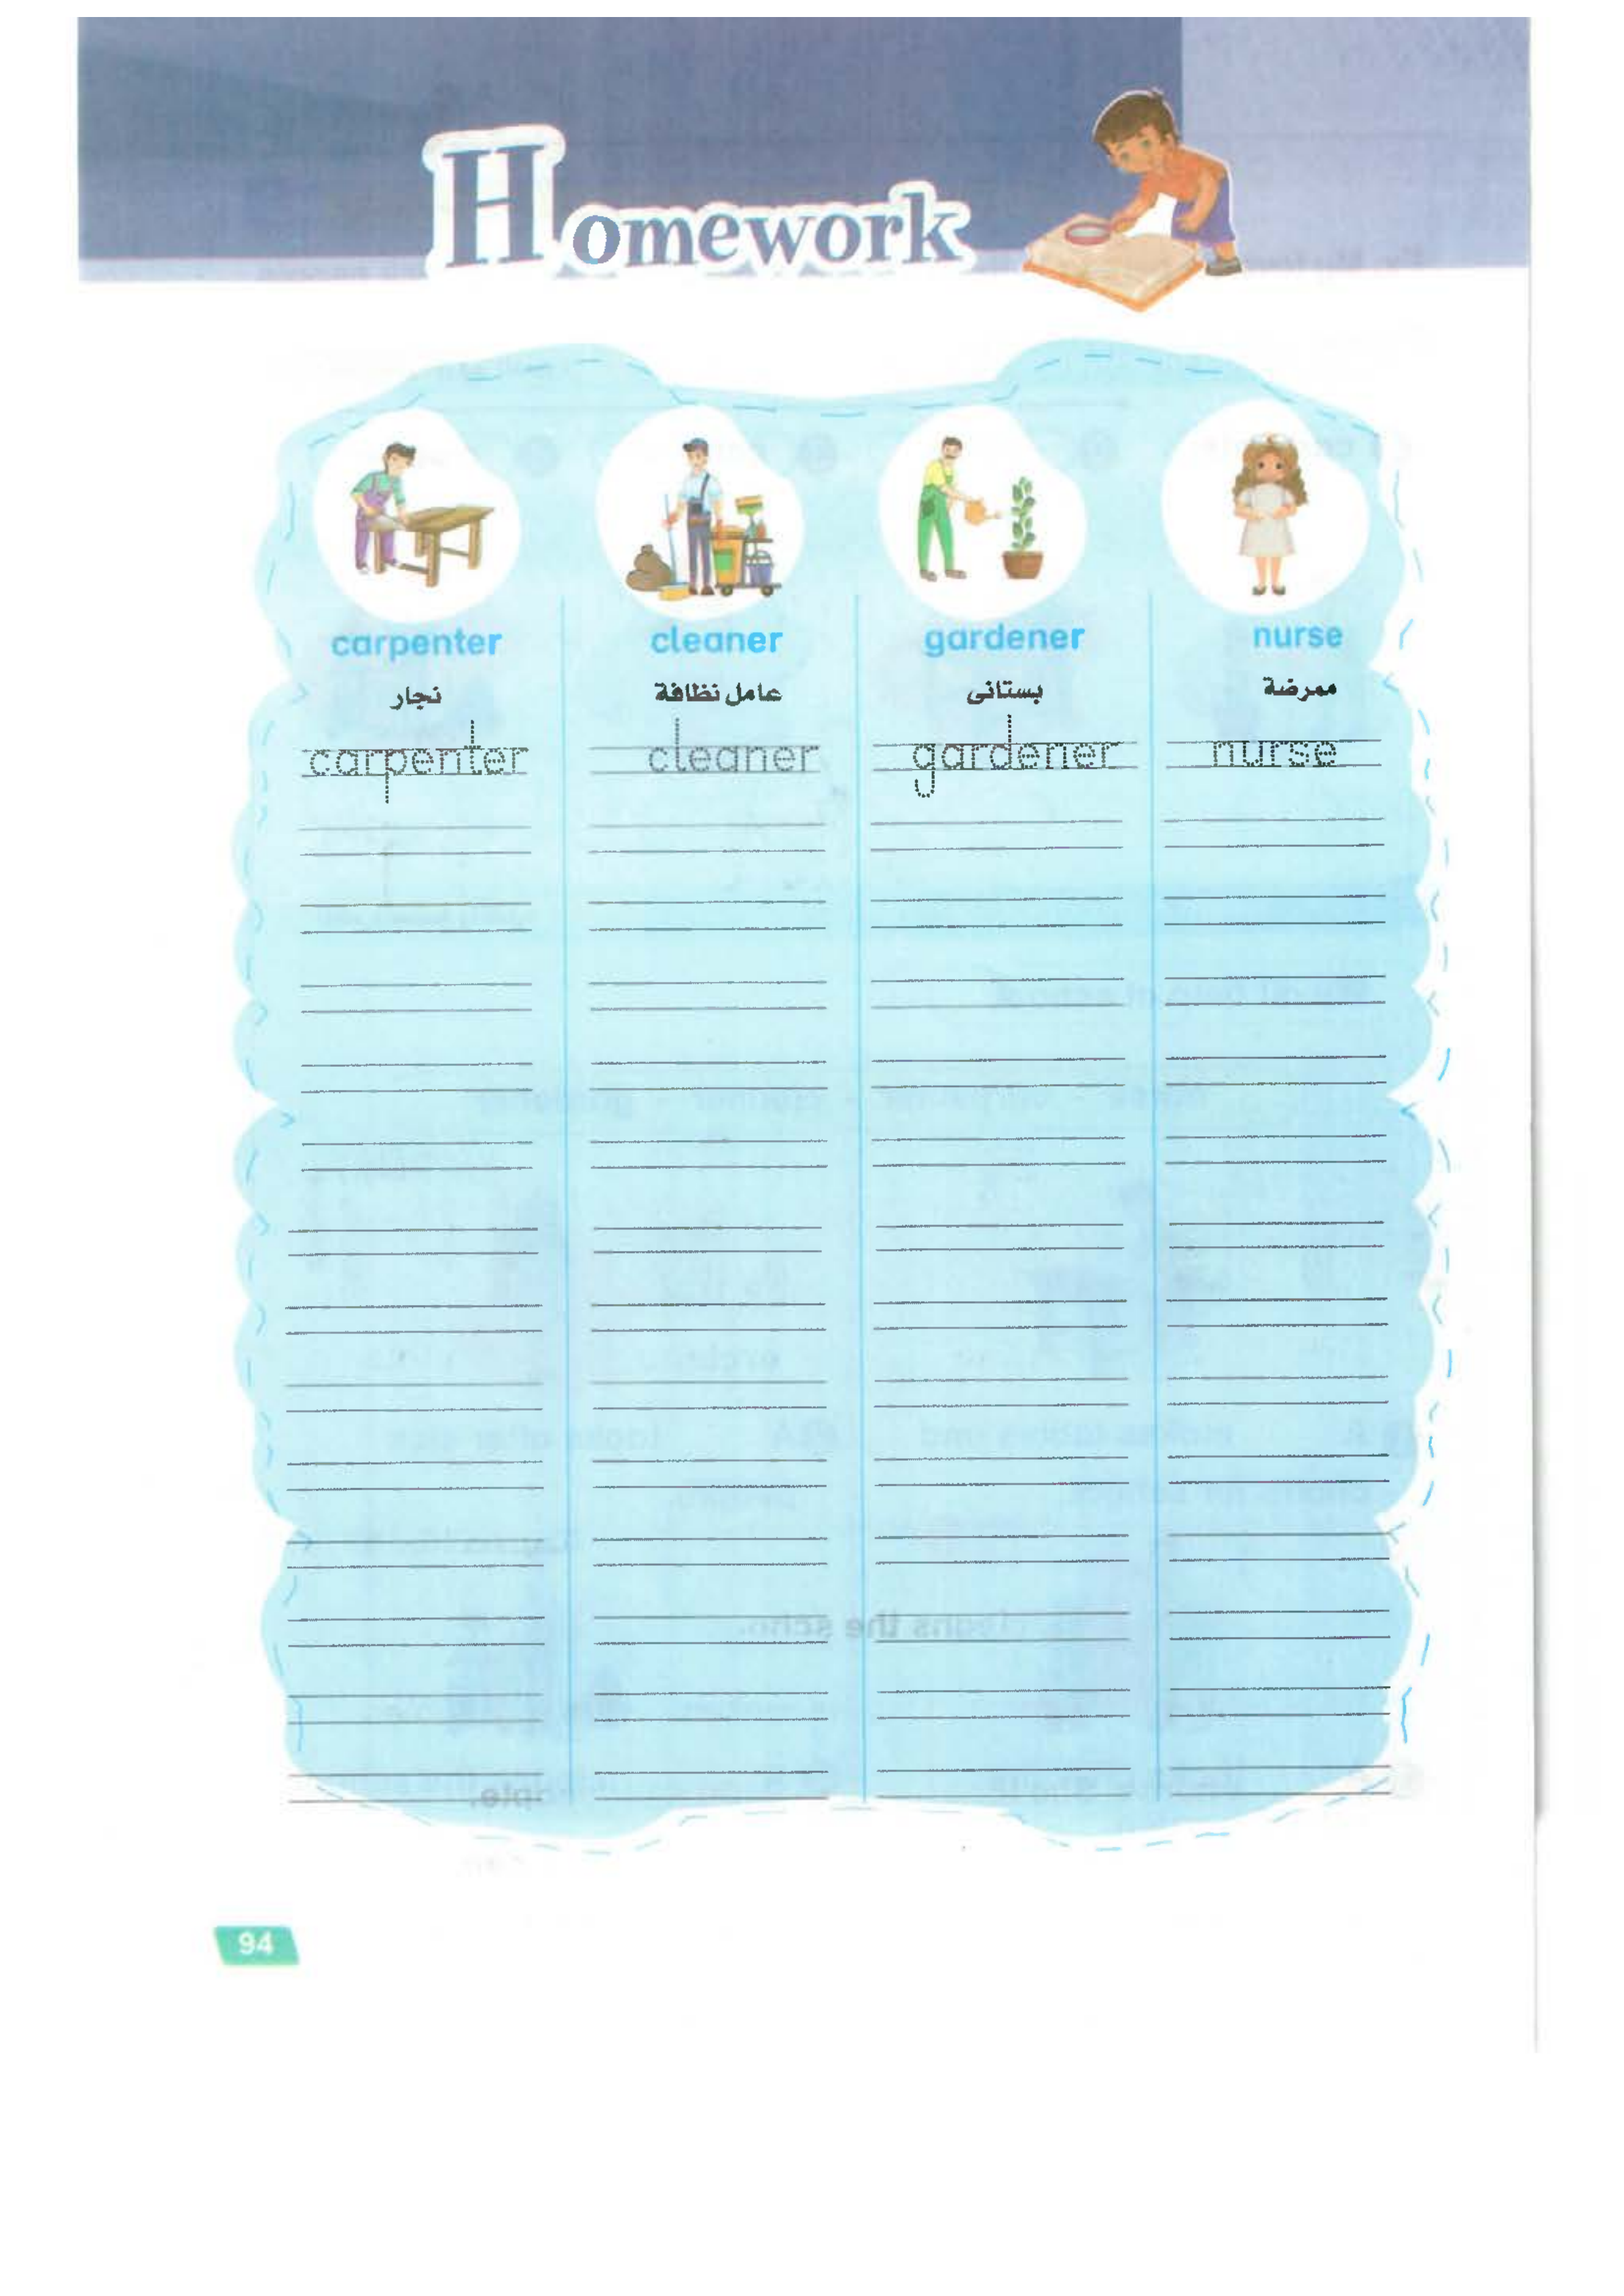 Homework
carpenter cleaner gardener nurse
نجار عامل نظافة بستانى ممرضة
carpenter cleaner gardener nurse
94